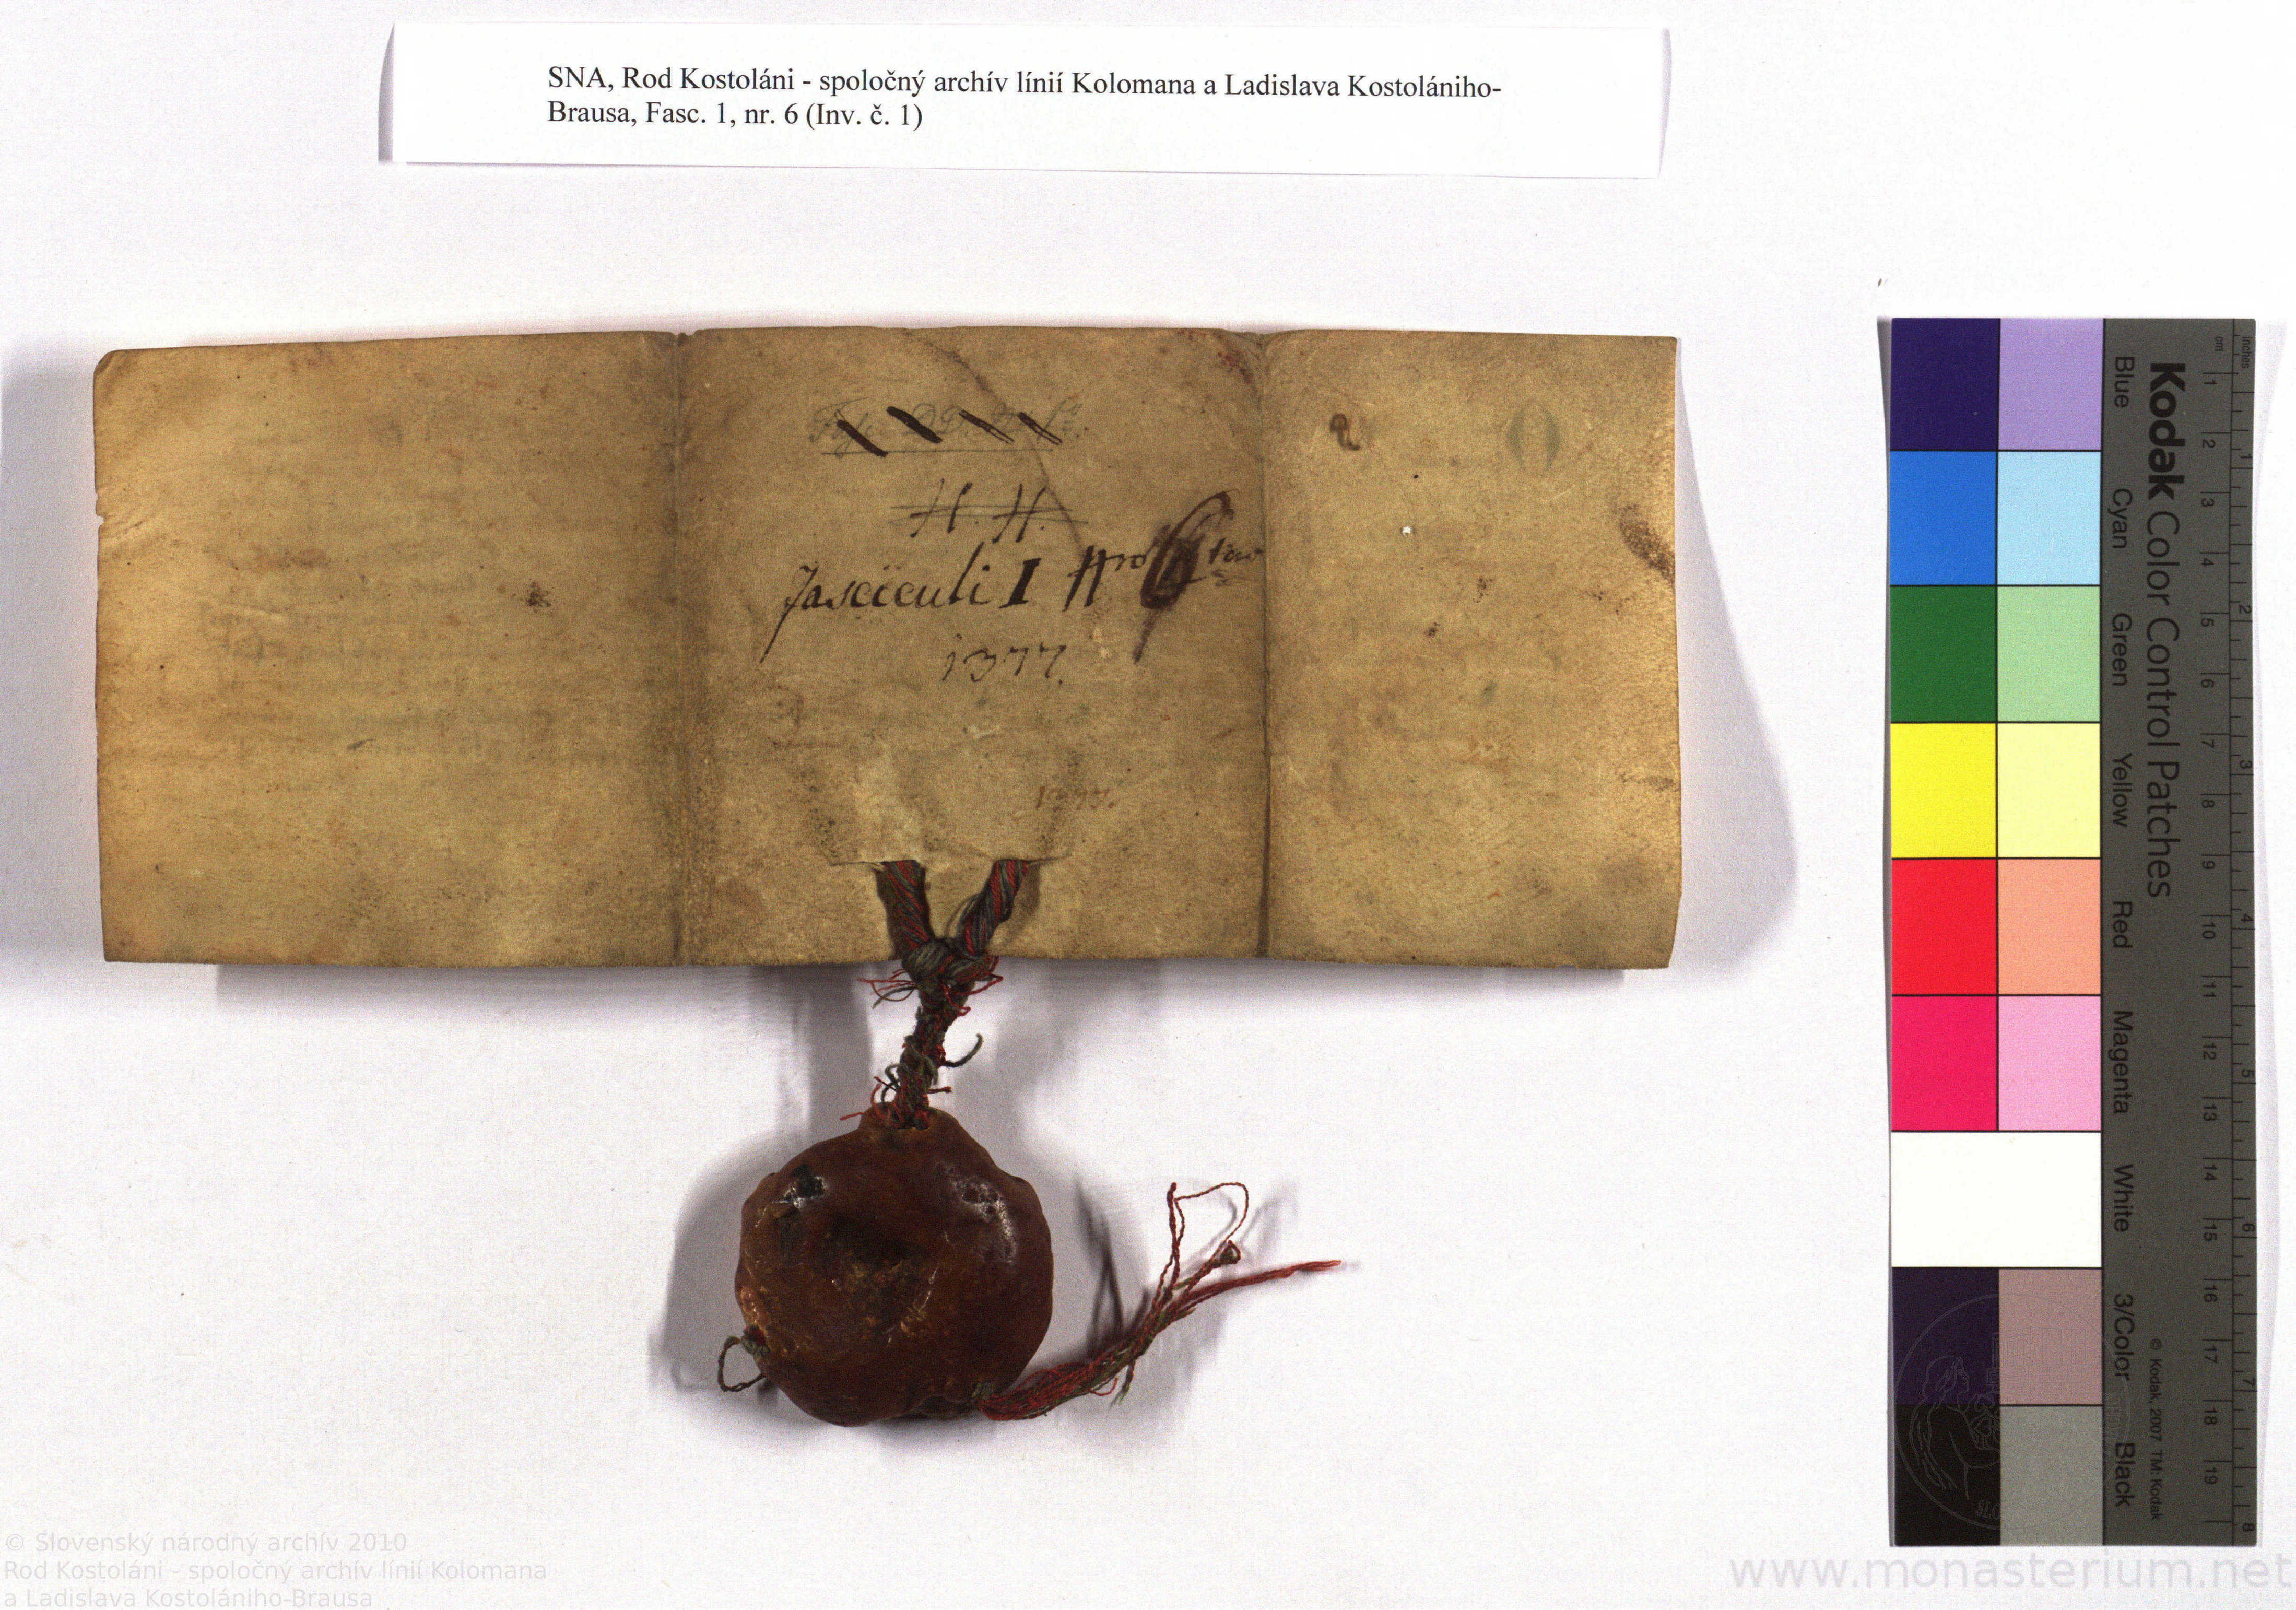 SNA, Rod Kostoláni - spoločný archív línií Kolomana a Ladislava Kostolániho-
Brausa, Fasc. 1, nr. 6 (Inv. č. 1)
H. H.
Fasciculi I Nro 6
1377.
1377.
Kodak Color Control Patches
Blue Cyan Green Yellow Red Magenta White 3/Color Black
© Kodak, 2007 TM: Kodak
cm 1 2 3 4 5 6 7 8 9 10 11 12 13 14 15 16 17 18 19
inches 1 2 3 4 5 6 7 8
© Slovenský národný archív 2010
Rod Kostoláni - spoločný archív línií Kolomana
a Ladislava Kostolániho-Brausa
www.monasterium.net